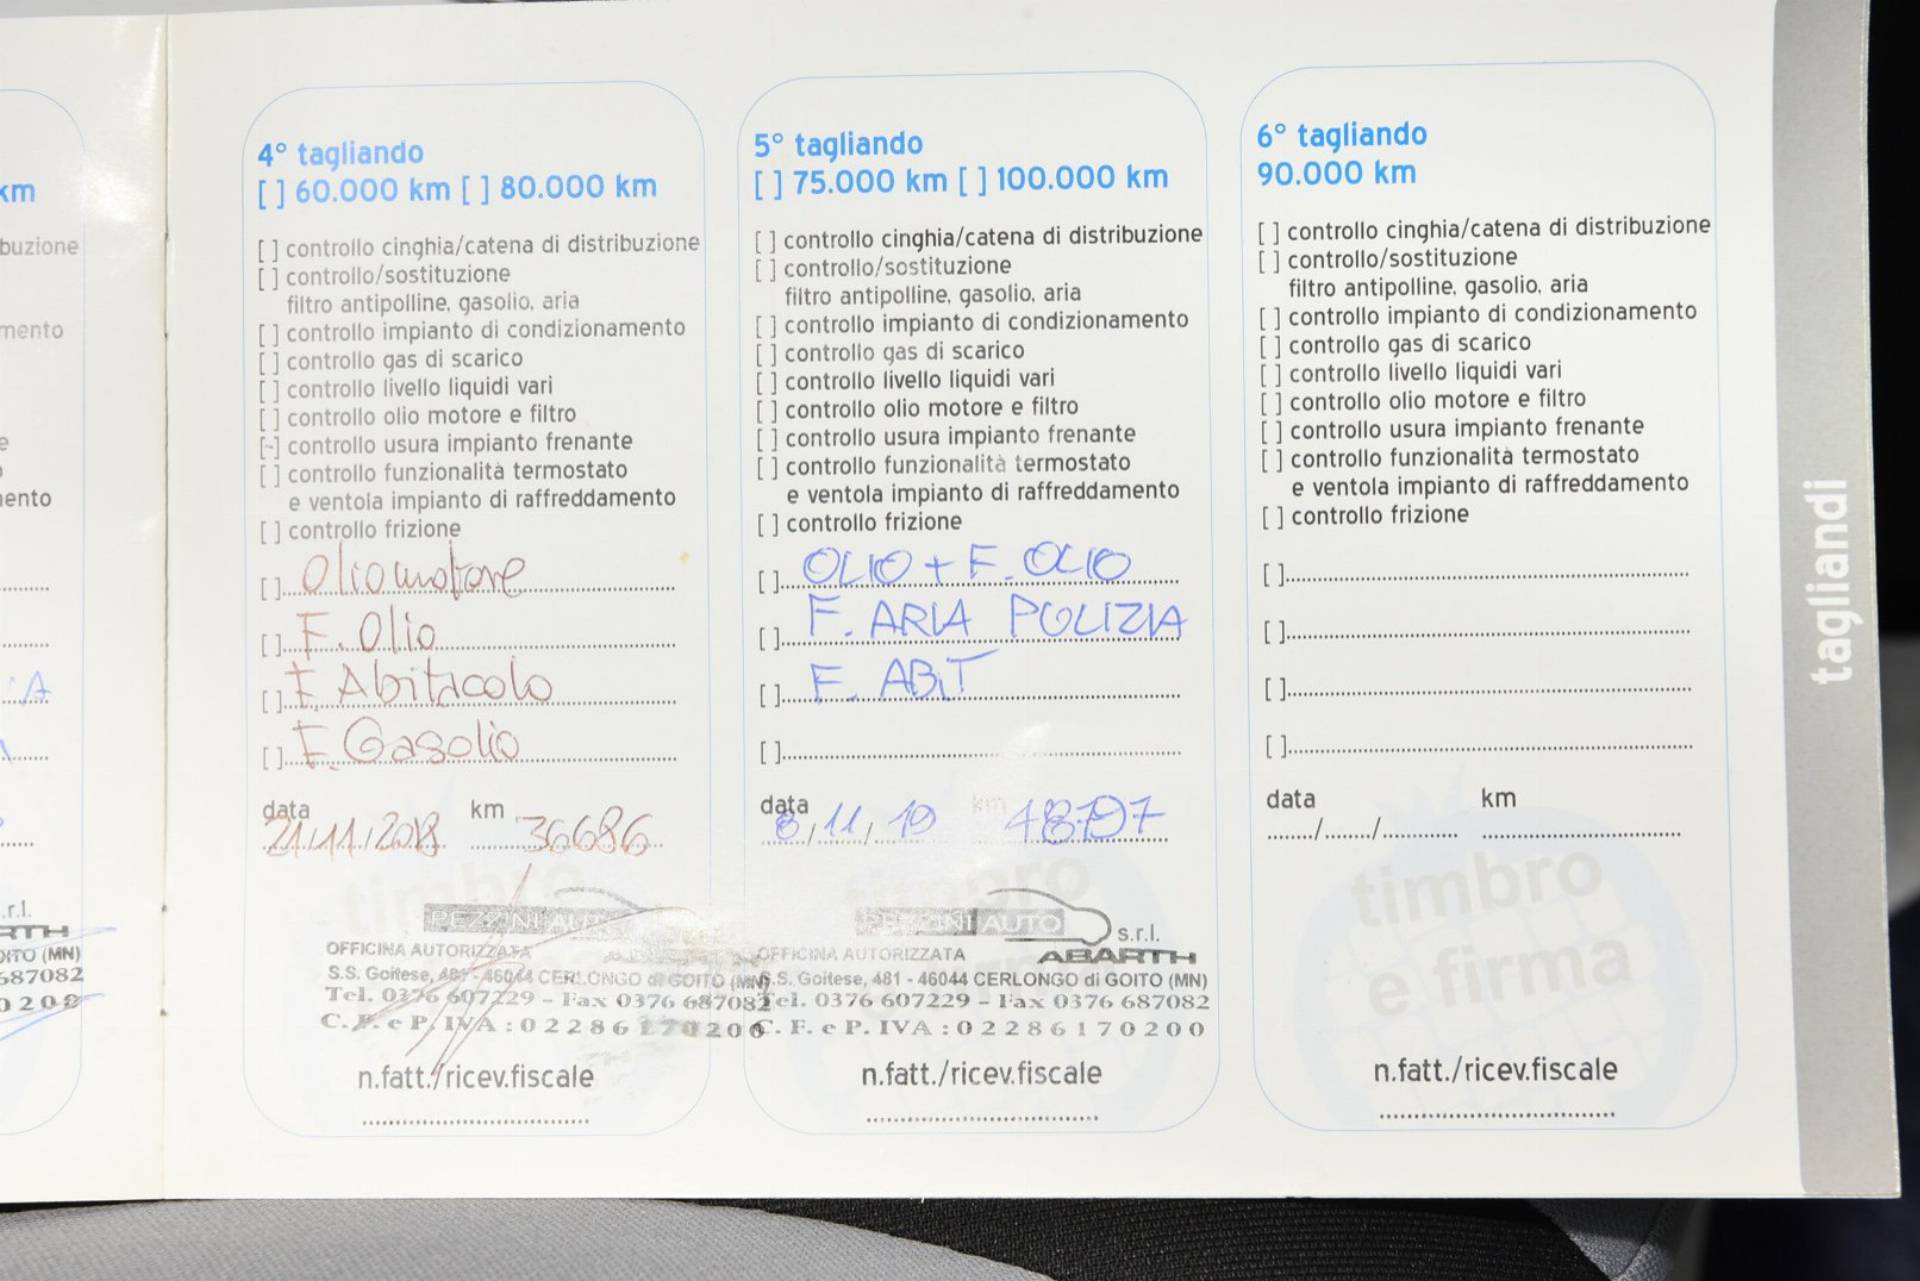 km
buzione
mento
e
ento
A
.r.l.
RTH
OITO (MN)
687082
0 2 0 0
4° tagliando
[ ] 60.000 km [ ] 80.000 km
[ ] controllo cinghia/catena di distribuzione
[ ] controllo/sostituzione
filtro antipolline, gasolio, aria
[ ] controllo impianto di condizionamento
[ ] controllo gas di scarico
[ ] controllo livello liquidi vari
[ ] controllo olio motore e filtro
[-] controllo usura impianto frenante
[ ] controllo funzionalità termostato
e ventola impianto di raffreddamento
[ ] controllo frizione
[ ] Olio motore
[ ] F. Olio
[ ] F. Abitacolo
[ ] F. Gasolio
data km
21/11/2018 36686
timbro
PEZZINI AUTO
OFFICINA AUTORIZZATA
S.S. Goitese, 481 - 46044 CERLONGO di GOITO (MN)
Tel. 0376 607229 - Fax 0376 687082
C. F. e P. IVA : 0 2 2 8 6 1 7 0 2 0 0
n.fatt./ricev.fiscale
5° tagliando
[ ] 75.000 km [ ] 100.000 km
[ ] controllo cinghia/catena di distribuzione
[ ] controllo/sostituzione
filtro antipolline, gasolio, aria
[ ] controllo impianto di condizionamento
[ ] controllo gas di scarico
[ ] controllo livello liquidi vari
[ ] controllo olio motore e filtro
[ ] controllo usura impianto frenante
[ ] controllo funzionalità termostato
e ventola impianto di raffreddamento
[ ] controllo frizione
[ ] OLIO + F. OLIO
[ ] F. ARIA POLIZIA
[ ] F. ABIT
[ ]
data km
8/11/19 48797
timbro
PEZZINI AUTO s.r.l.
OFFICINA AUTORIZZATA ABARTH
S.S. Goitese, 481 - 46044 CERLONGO di GOITO (MN)
Tel. 0376 607229 - Fax 0376 687082
C. F. e P. IVA : 0 2 2 8 6 1 7 0 2 0 0
n.fatt./ricev.fiscale
6° tagliando
90.000 km
[ ] controllo cinghia/catena di distribuzione
[ ] controllo/sostituzione
filtro antipolline, gasolio, aria
[ ] controllo impianto di condizionamento
[ ] controllo gas di scarico
[ ] controllo livello liquidi vari
[ ] controllo olio motore e filtro
[ ] controllo usura impianto frenante
[ ] controllo funzionalità termostato
e ventola impianto di raffreddamento
[ ] controllo frizione
[ ]
[ ]
[ ]
[ ]
data km
timbro
e firma
n.fatt./ricev.fiscale
tagliandi